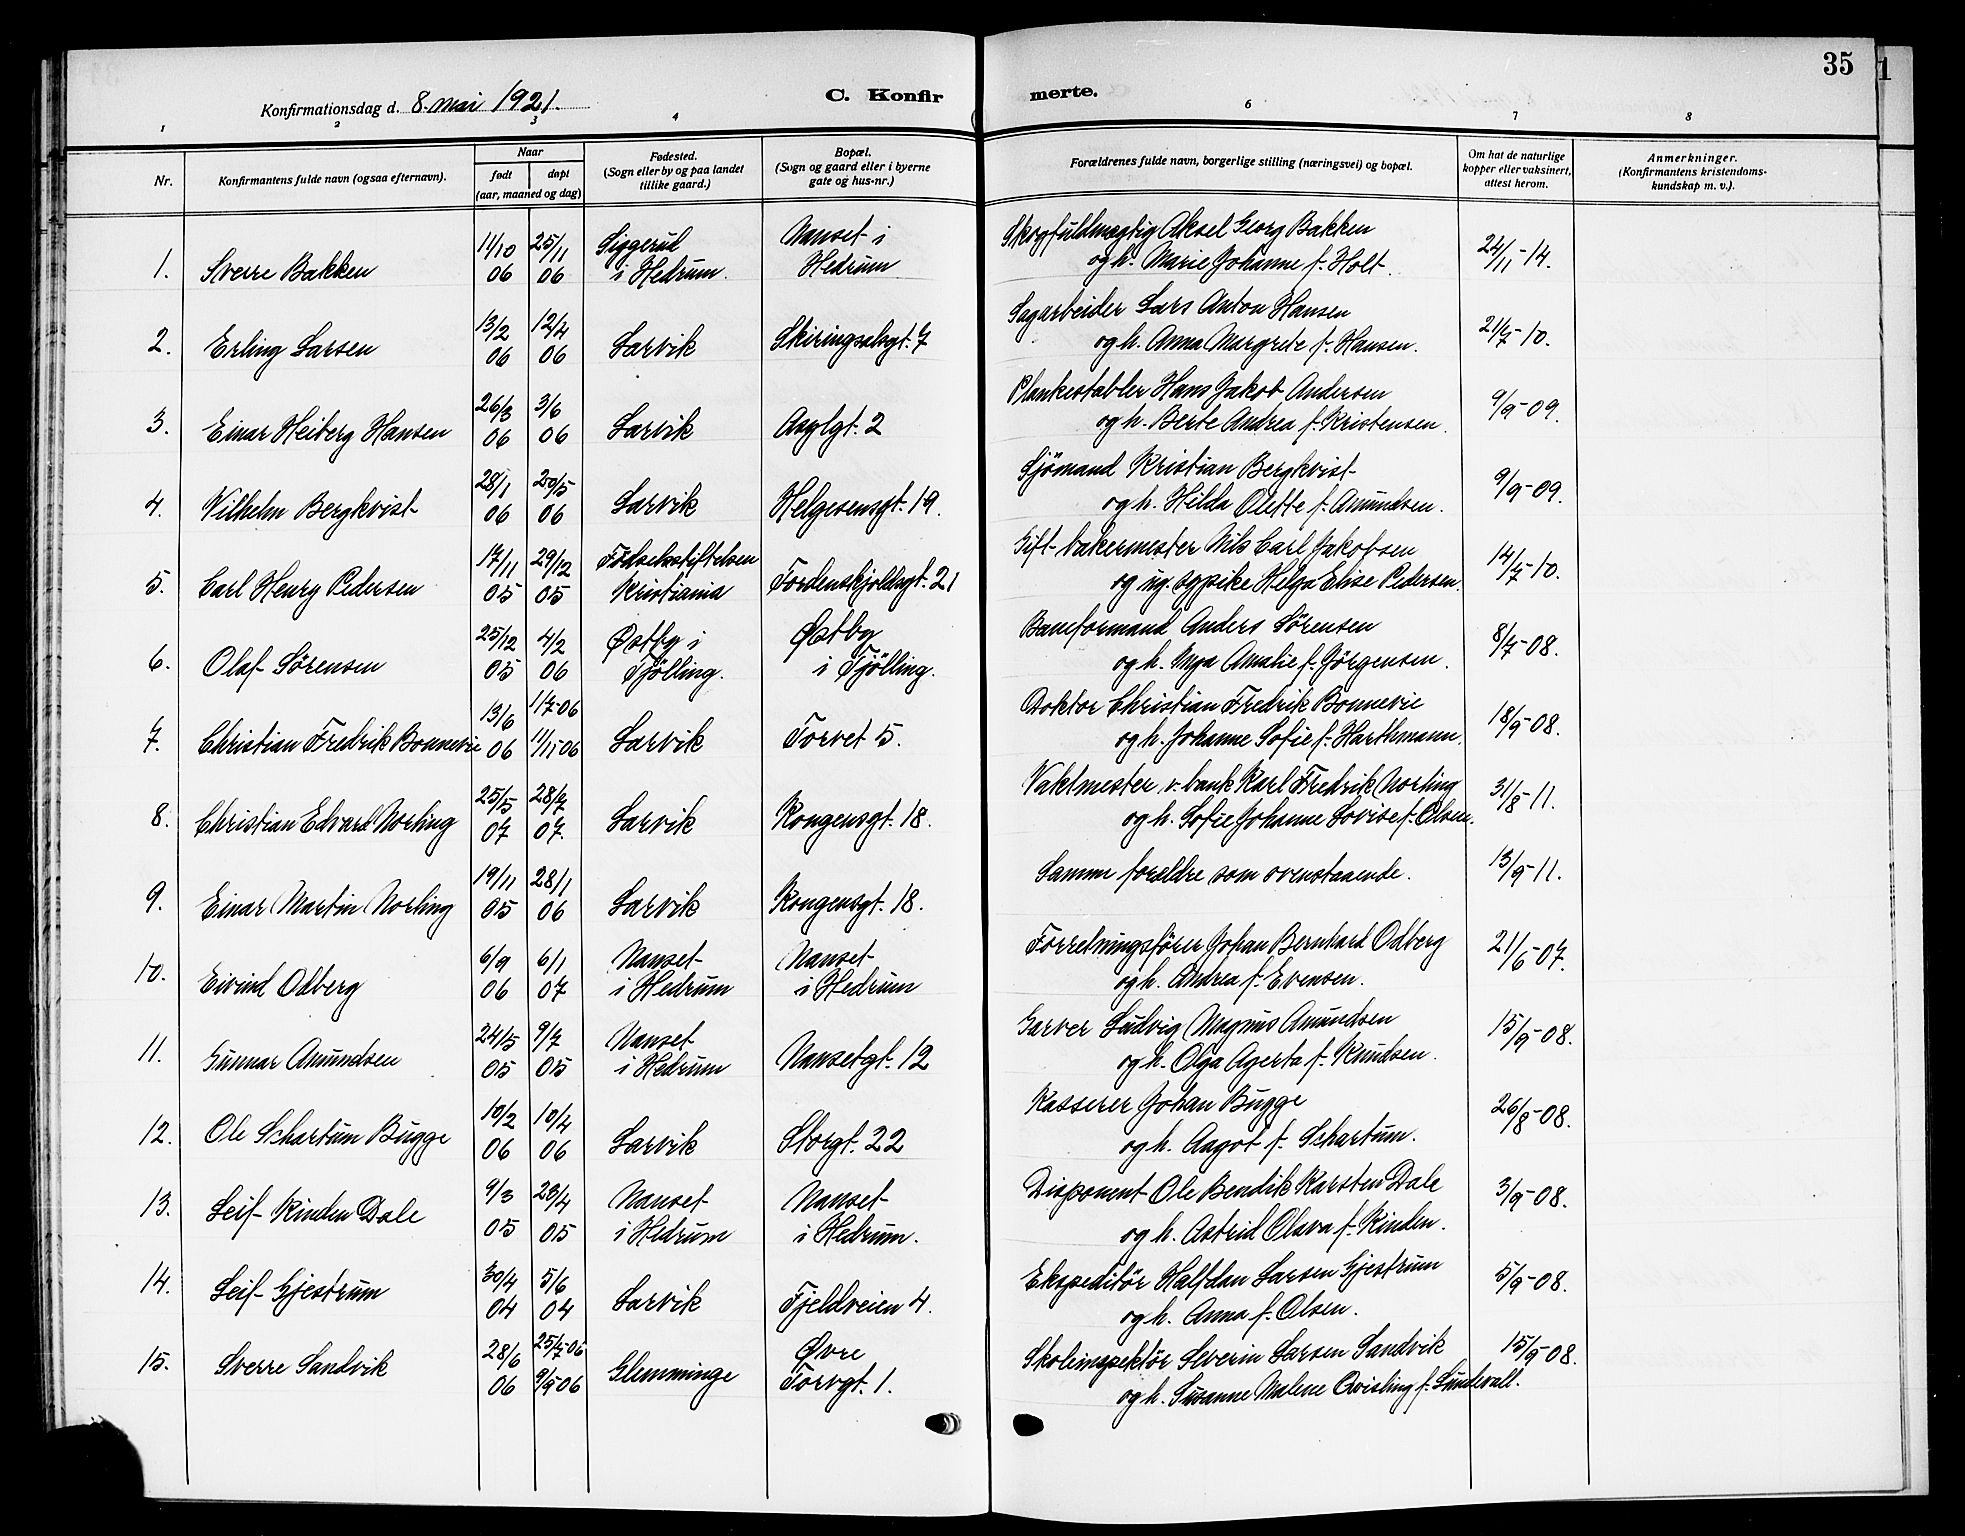 35
1
Konfirmationsdag d. 8. mai 1921.
C. Konfir
merte.
1 2 3 4 5 6 7 8
Nr.
Konfirmantens fulde navn (ogsaa efternavn).
Naar
født
døpt
(aar, maaned og dag)
Fødested.
(Sogn eller by og paa landet
tillike gaard.)
Bopæl.
(Sogn og gaard eller i byerne
gate og hus-nr.)
Forældrenes fulde navn, borgerlige stilling (næringsvei) og bopæl.
Om hat de naturlige
kopper eller vaksinert,
attest herom.
Anmerkninger.
(Konfirmantens kristendoms-
kundskap m. v.).
11/10 25/11 Siggerud Nanset i Skogfuldmægtig Aksel Georg Bakken
1. Sverre Bakken 06 06 i Hedrum. Hedrum og h. Marie Johanne f. Holt. 24/11-14.
13/2 12/4 Sagarbeider Lars Anton Hansen
2. Erling Larsen 06 06 Larvik Skiringssalsgt. 7 og h. Anna Margrete f. Hansen. 21/7-10.
26/3 3/6 Plankestabler Hans Jakob Andersen
3. Einar Heiberg Hansen 06 06 Larvik Asylgt. 2 og h. Berte Andrea f. Kristensen. 9/9-09.
28/1 20/5 Sjömand Kristian Bergkvist
4. Vilhelm Bergkvist 06 06 Larvik Helgesensgt. 19. og h. Hilda Olette f. Amundsen. 9/9-09.
17/11 29/12 Födselsstiftelsen Gift bakermester Nils Carl Jakobsen
5. Carl Henry Pedersen 05 05 Kristiania Tordenskjoldsgt. 21 og ug. sypike Helga Elise Pedersen. 14/7-10.
25/12 4/2 Østby i Østby Baneformand Anders Sørensen
6. Olaf Sörensen 05 06 Tjölling. i Tjölling. og h. Mya Amalie f. Jörgensen. 8/7-08.
13/6 1/7-06 Doktor Christian Fredrik Bonnevie
7. Christian Fredrik Bonnevie 06 11/11-06 Larvik Torvet 5. og h. Johanne Sofie f. Harthmann. 18/9-08.
25/5 28/7 Vaktmester v. bank Karl Fredrik Norling
8. Christian Edvard Norling 07 07. Larvik Kongensgt. 18. og h. Sofie Johanne Lovise f. Olsen. 31/8-11.
19/11 28/1
9. Einar Martin Norling 05 06 Larvik Kongensgt. 18. Samme forældre som ovenstaaende. 13/9-11.
6/9 6/1 Nanset Nanset Forretningsfører Johan Bernhard Odberg
10. Eivind Odberg 06 07 i Hedrum i Hedrum og h. Andrea f. Evensen. 21/6-07.
24/5 9/7 Nanset Garver Ludvig Magnus Amundsen
11. Gunnar Amundsen 05 05 i Hedrum Nansetgt. 12 og h. Olga Agerta f. Knudsen. 15/9-08.
10/2 10/4 Kasserer Johan Bugge
12. Ole Schartum Bugge 06 06 Larvik Storgt. 22 og h. Aagot f. Schartum. 26/8-08.
9/3 23/4 Nanset Nanset Disponent Ole Bendik Karsten Dale
13. Leif Kinden Dale 05 05 i Hedrum i Hedrum. og h. Astrid Olava f. Kinden. 3/9-08.
30/4 5/6 Ekspeditör Halfdan Larsen Gjestrum
14. Leif Gjestrum 04 04 Larvik Fjeldveien 4. og h. Anna f. Olsen. 5/9-08.
28/6 25/7-06 Øvre Skoleinspektör Severin Larsen Sandvik
15. Sverre Sandvik 06 9/9-06 Glemminge Torvgt. 1. og h. Susanne Malene Qvisling f. Lundevall. 15/9-08.